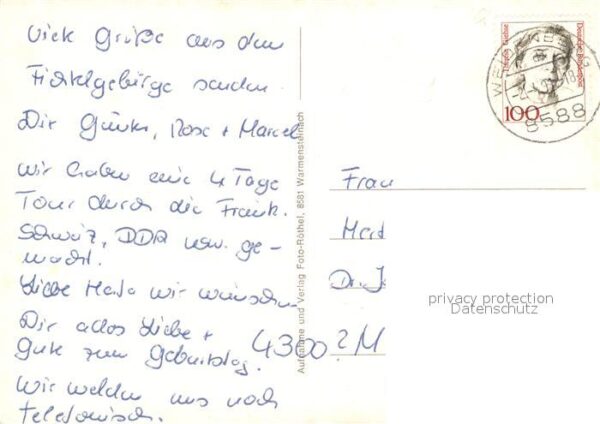 Viele Grüße aus dem
Fichtelgebirge senden
Dir Günter, Rosa + Marcel
wir haben eine 4 Tage
Tour durch die Fränk.
Schweiz, DDR usw. ge-
macht.
Liebe wir wünschen
Dir alles Liebe +
Gute zum Geburtstag.
Wir melden uns noch
telefonisch.
Aufnahme und Verlag Foto-Röthel, 8581 Warmensteinach
Deutsche Bundespost
100
WEIDENBERG
8588
Frau
Mart
Dr. Je
4300 ? M
privacy protection
Datenschutz